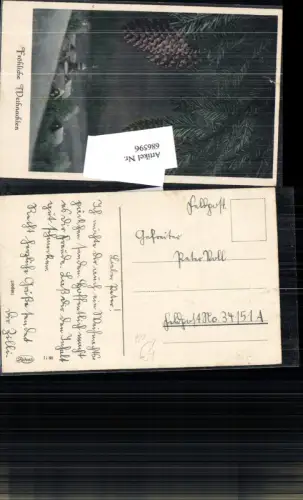 Fröhliche Weihnachten
Artikel Nr.
686596
Feldpost.
Gefreiter
Peter Noll
Feldpost No. 34151 A
Lieber Peter!
Ich möchte dir auch ein Weihnachts
päckchen senden. Hoffentlich macht
es dir Freude. Laß dir den Inhalt
gut schmecken.
Recht herzliche Grüße sendet